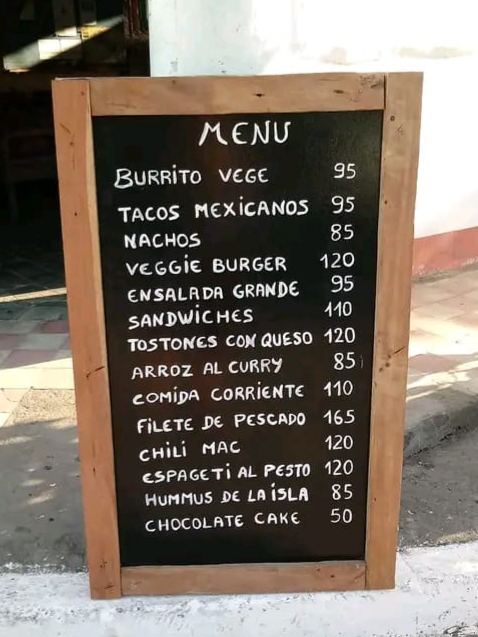 MENU
BURRITO VEGE 95
TACOS MEXICANOS 95
NACHOS 85
VEGGIE BURGER 120
ENSALADA GRANDE 95
SANDWICHES 110
TOSTONES CON QUESO 120
ARROZ AL CURRY 85
COMIDA CORRIENTE 110
FILETE DE PESCADO 165
CHILI MAC 120
ESPAGETI AL PESTO 120
HUMMUS DE LA ISLA 85
CHOCOLATE CAKE 50